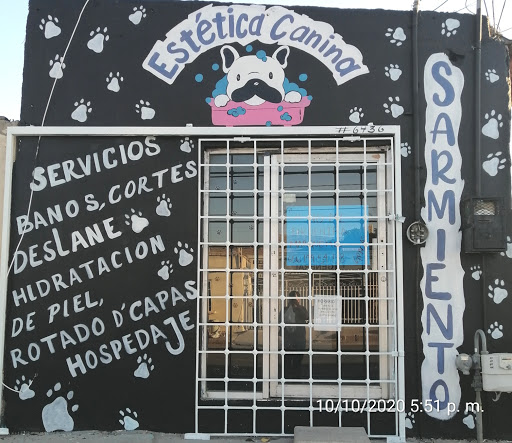 Estética Canina
#6436
SERVICIOS
BANOS, CORTES
DESLANE
HIDRATACION
DE PIEL,
ROTADO D'CAPAS
HOSPEDAJE
SARMIENTO
10/10/2020 5:51 p. m.